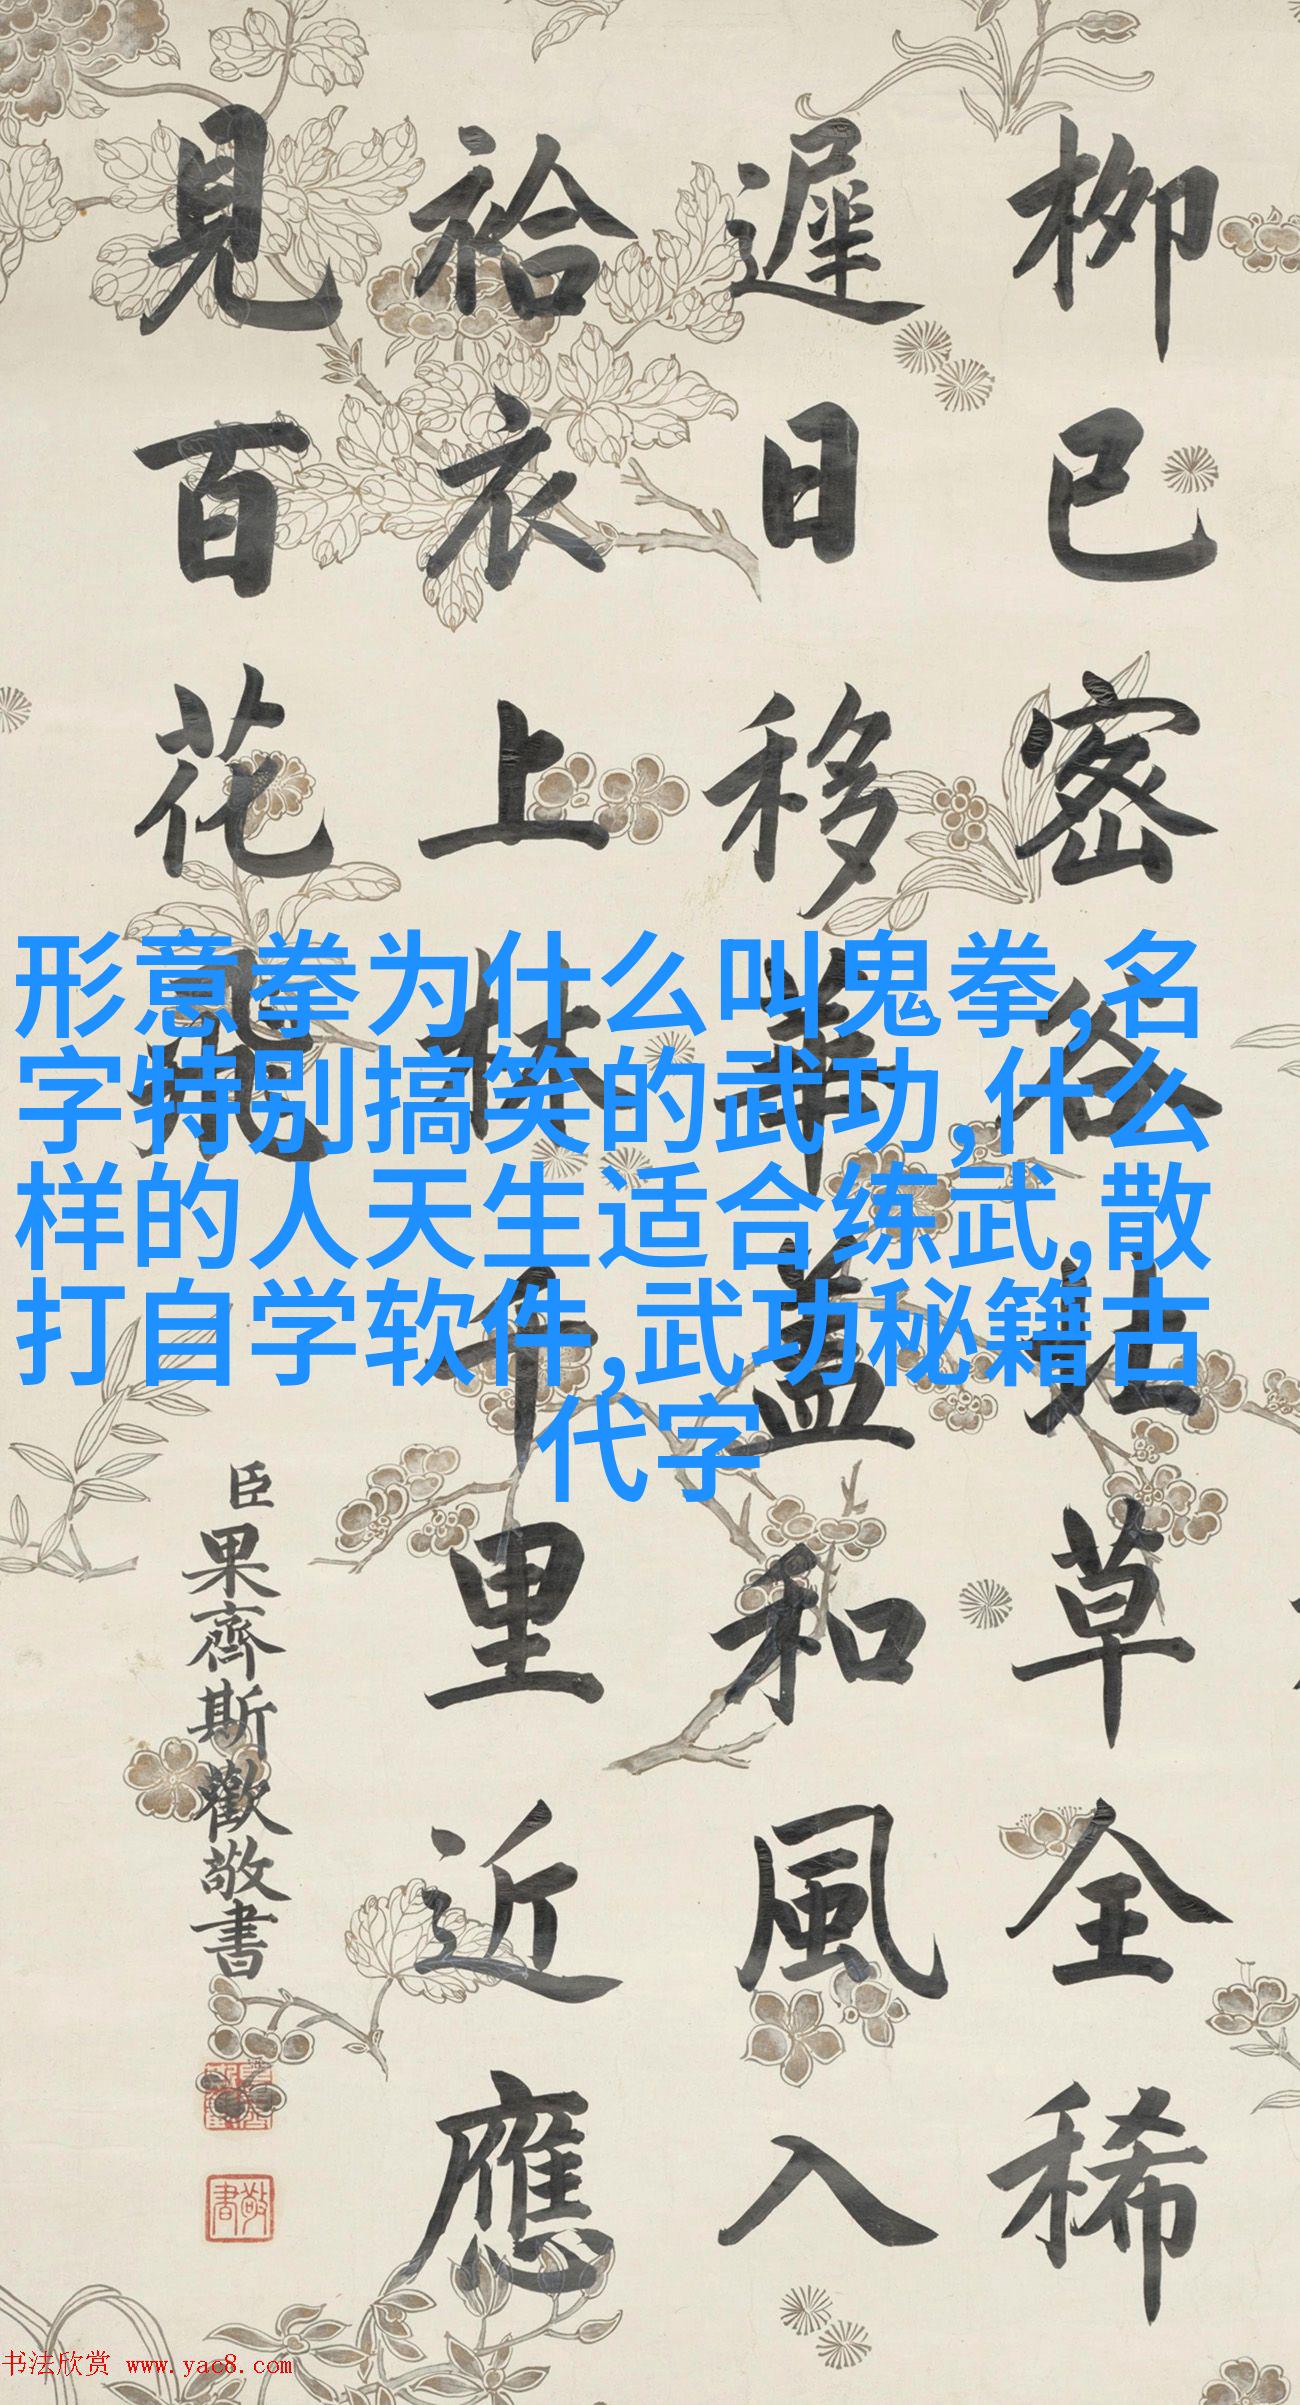 柳已密後扯草全稀
遲日移華蓋和風入
袷衣上林千里近應
見百花飛
臣果齊斯歡敬書
敬書
形意拳为什么叫鬼拳,名
字特别搞笑的武功,什么
样的人天生适合练武,散
打自学软件,武功秘籍古
代字
书法欣赏 www.yac8.com